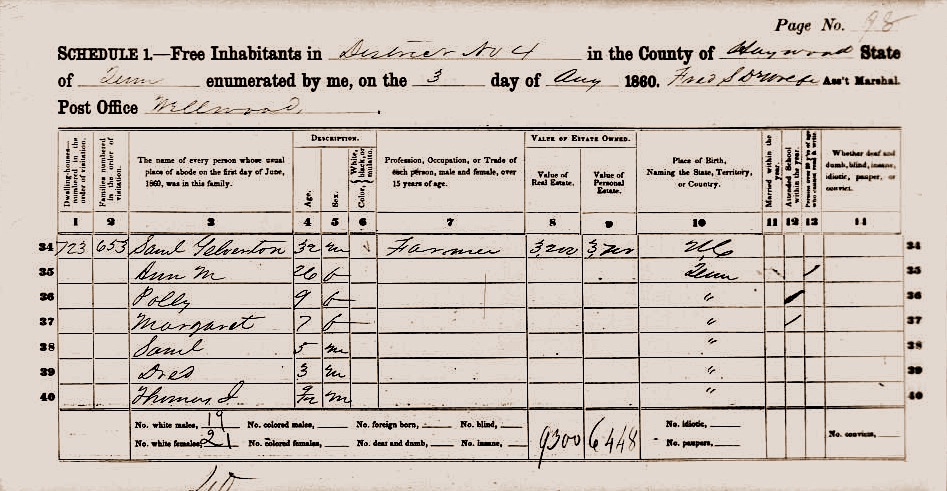 Page No. 98
SCHEDULE 1.—Free Inhabitants in District No 4 in the County of Haywood State
of Tenn enumerated by me, on the 3 day of Aug 1860. Fred S Ass't Marshal.
Post Office Wellwood.
Dwelling-houses—numbered in the order of visitation.
Families numbered in the order of visitation.
The name of every person whose usual place of abode on the first day of June, 1860, was in this family.
DESCRIPTION.
Age.
Sex.
Color, White, black, or mulatto.
Profession, Occupation, or Trade of each person, male and female, over 15 years of age.
VALUE OF ESTATE OWNED.
Value of Real Estate.
Value of Personal Estate.
Place of Birth, Naming the State, Territory, or Country.
Married within the year.
Attended School within the year.
Persons over 20 y'rs of age who cannot read & write.
Whether deaf and dumb, blind, insane, idiotic, pauper, or convict.
1 2 3 4 5 6 7 8 9 10 11 12 13 14
34 723 653 Saml Yelverton 32 m Farmer 3,200 NC 34
35 Ann M 26 f Tenn / 35
36 Polly 9 f " / 36
37 Margaret 7 f " / 37
38 Saml 5 m " 38
39 Dred 3 m " 39
40 Thomas J 9/12 m " 40
No. white males, 19 No. colored males, No. foreign born, No. blind, 9300 6448 No. idiotic, No. convicts,
No. white females, 21 No. colored females, No. deaf and dumb, No. insane, No. paupers,
40